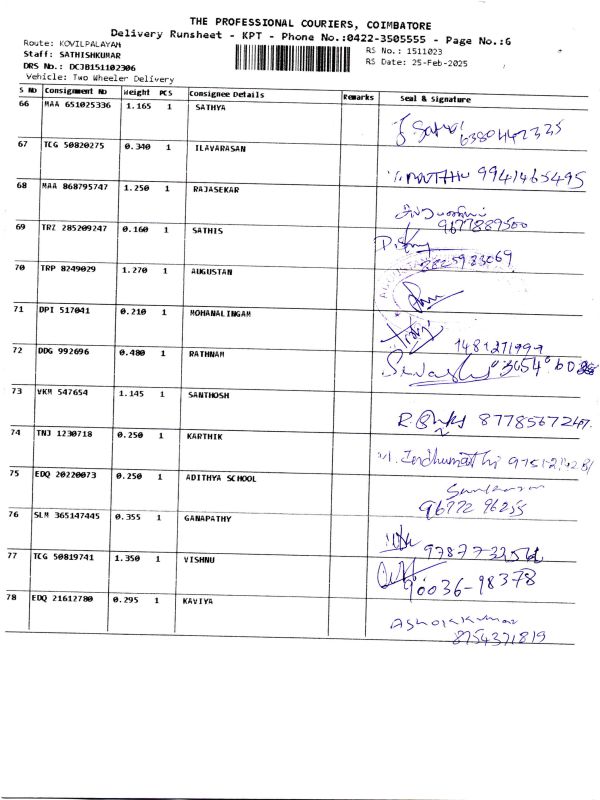 THE PROFESSIONAL COURIERS, COIMBATORE
Delivery Runsheet - KPT - Phone No.:0422-3505555 - Page No.:6
Route: KOVILPALAYAM
Staff: SATHISHKUMAR
DRS No.: DCJB151102306
Vehicle: Two Wheeler Delivery
RS No.: 1511023
RS Date: 25-Feb-2025
S No Consignment No Weight PCS Consignee Details Remarks Seal & Signature
66 MAA 651025336 1.165 1 SATHYA
67 TCG 50820275 0.340 1 ILAVARASAN 9941465495
68 MAA 868795747 1.250 1 RAJASEKAR 9677889500
69 TRZ 285209247 0.160 1 SATHIS
70 TRP 8249029 1.270 1 AUGUSTAN
71 DPI 517041 0.210 1 MOHANALINGAM
72 DDG 992696 0.480 1 RATHNAM
73 VKM 547654 1.145 1 SANTHOSH
74 TNJ 1230718 0.250 1 KARTHIK M. Indhumathi
75 EDQ 20220073 0.250 1 ADITHYA SCHOOL 96772 96255
76 SLM 365147445 0.355 1 GANAPATHY
77 TCG 50819741 1.350 1 VISHNU 90036-98378
78 EDQ 21612780 0.295 1 KAVIYA Ashokkumar
8754371819